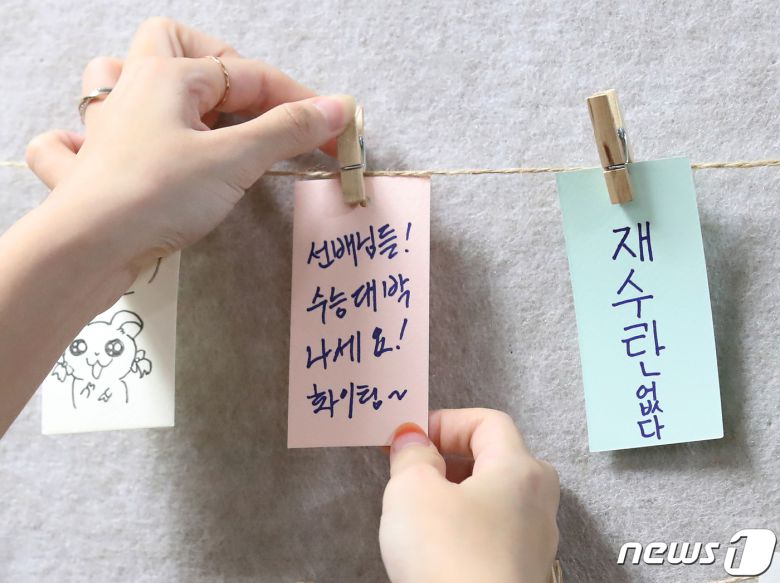 선배님들!
수능 대박
나세요!
화이팅~
재
수
란
없
다
news1